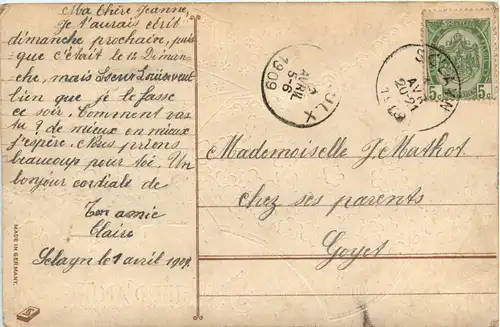 Ma Chère Jeanne,
Je t'aurais écrit
dimanche prochain, puis
que c'était le 1r Diman-
che, mais Soeur Louise veut
bien que je le fasse
ce soir. Comment vas
tu? de mieux en mieux
j'espère. Nous prions
beaucoup pour toi. Un
bonjour cordiale de
Ton amie
Claire
Sclayn le 1 avril 1909.
Mademoiselle J. Mathot
chez ses parents
Goyet
5c 5c
AVR
20-21
1909
AVRIL
5-6
1909
MADE IN GERMANY.